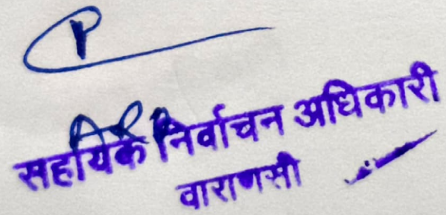 P
सहायक निर्वाचन अधिकारी
वाराणसी